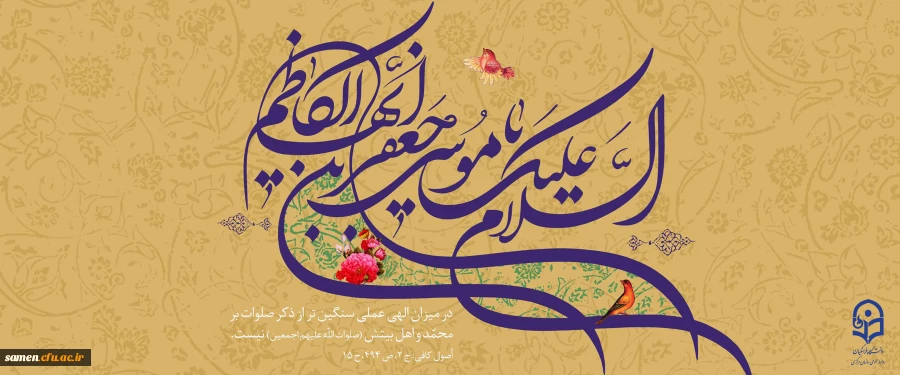 السلام علیک یا موسی بن جعفر ایها الکاظم
در میزان الهی عملی سنگین تر از ذکر صلوات بر
محمّد و اهل بیتش (صلوات الله علیهم اجمعین) نیست.
اصول کافی: ج ۲، ص ۴۹۴، ح ۱۵
دانشگاه فرهنگیان
samen.cfu.ac.ir